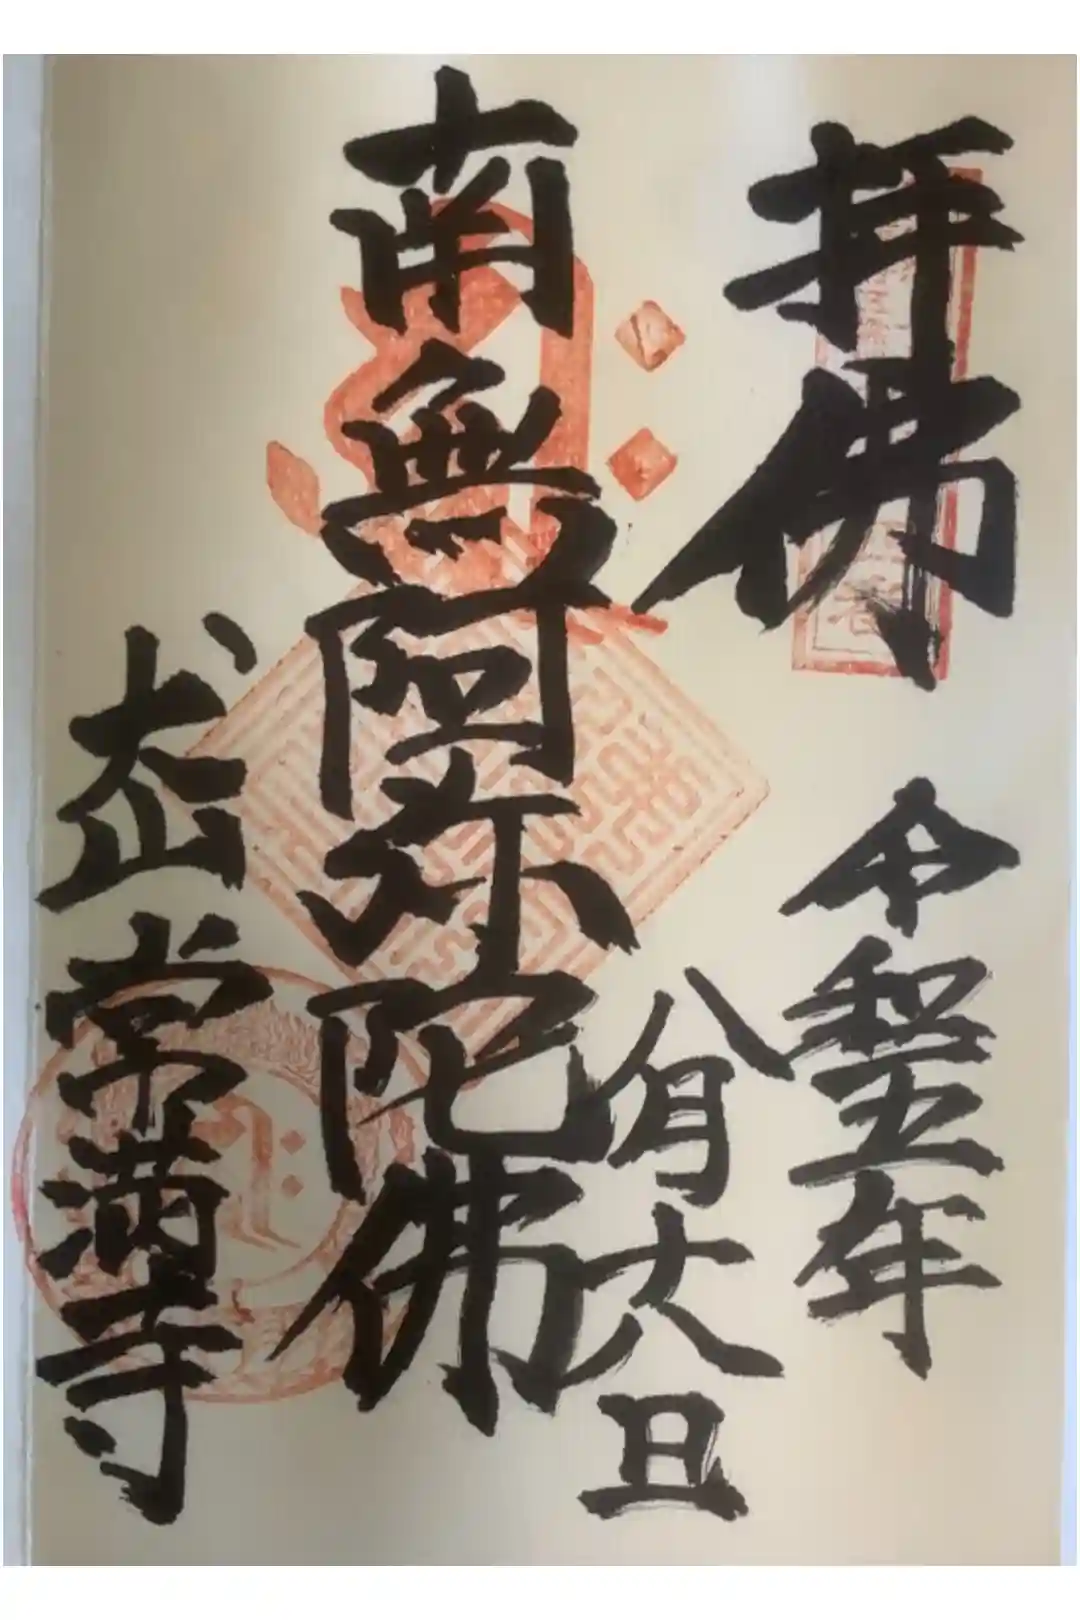 拝佛
令和五年
八月十八日
南無阿弥陀佛
武常満寺